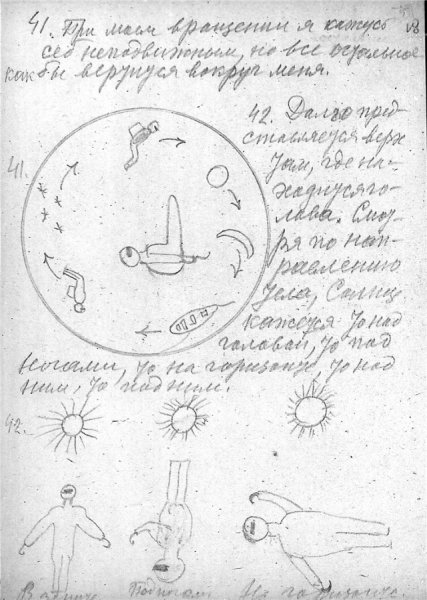 41. При моем вращении я кажусь
себе неподвижным, но все остальное
как бы вертится вокруг меня.
41.
42. Далее пред-
ставляется верх
там, где на-
ходится го-
лова. Смот-
ря по нап-
равлению
тела, Солнце
кажется то над
головой, то под
ногами, то на горизонте, то над
ним, то под ним.
42.
В зените Под ногами На горизонте.